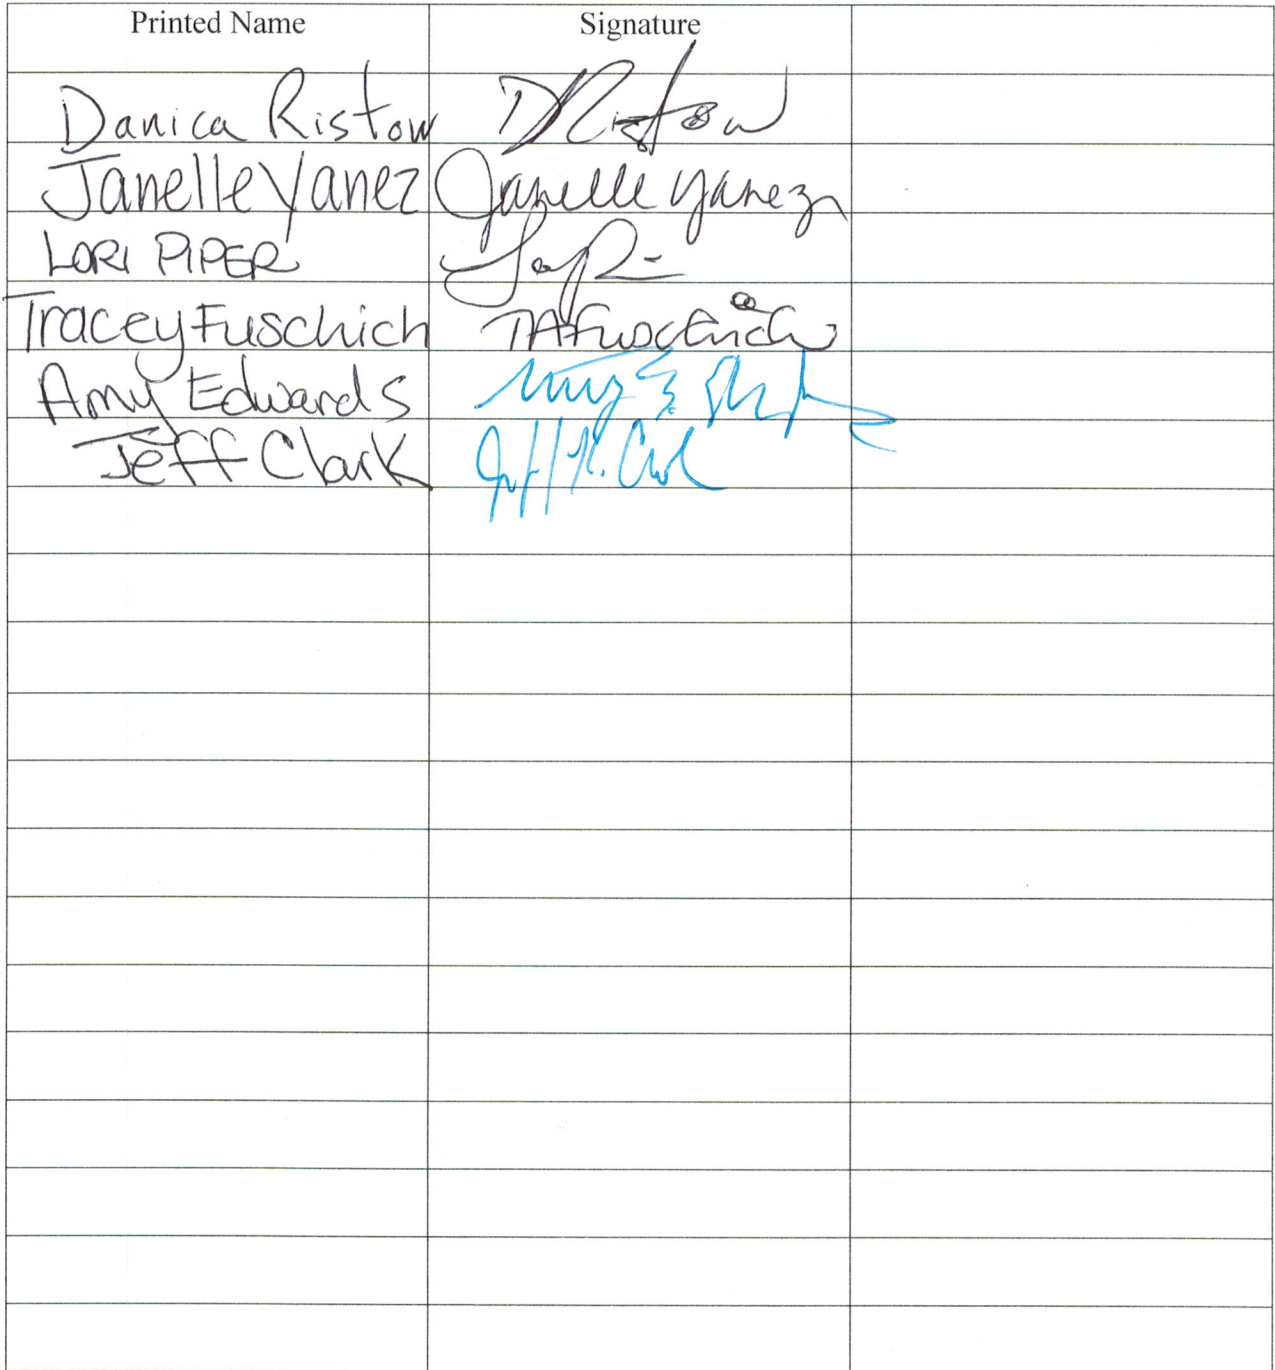 Printed Name Signature
Danica Ristow DRistow
Janelle Yanez Janelle Yanez
LORI PIPER
Tracey Fuschich TAFuschich
Amy Edwards
Jeff Clark